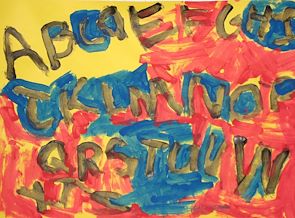 ABCDEFGHI
JKLMNOP
QRSTUVW
XYZ